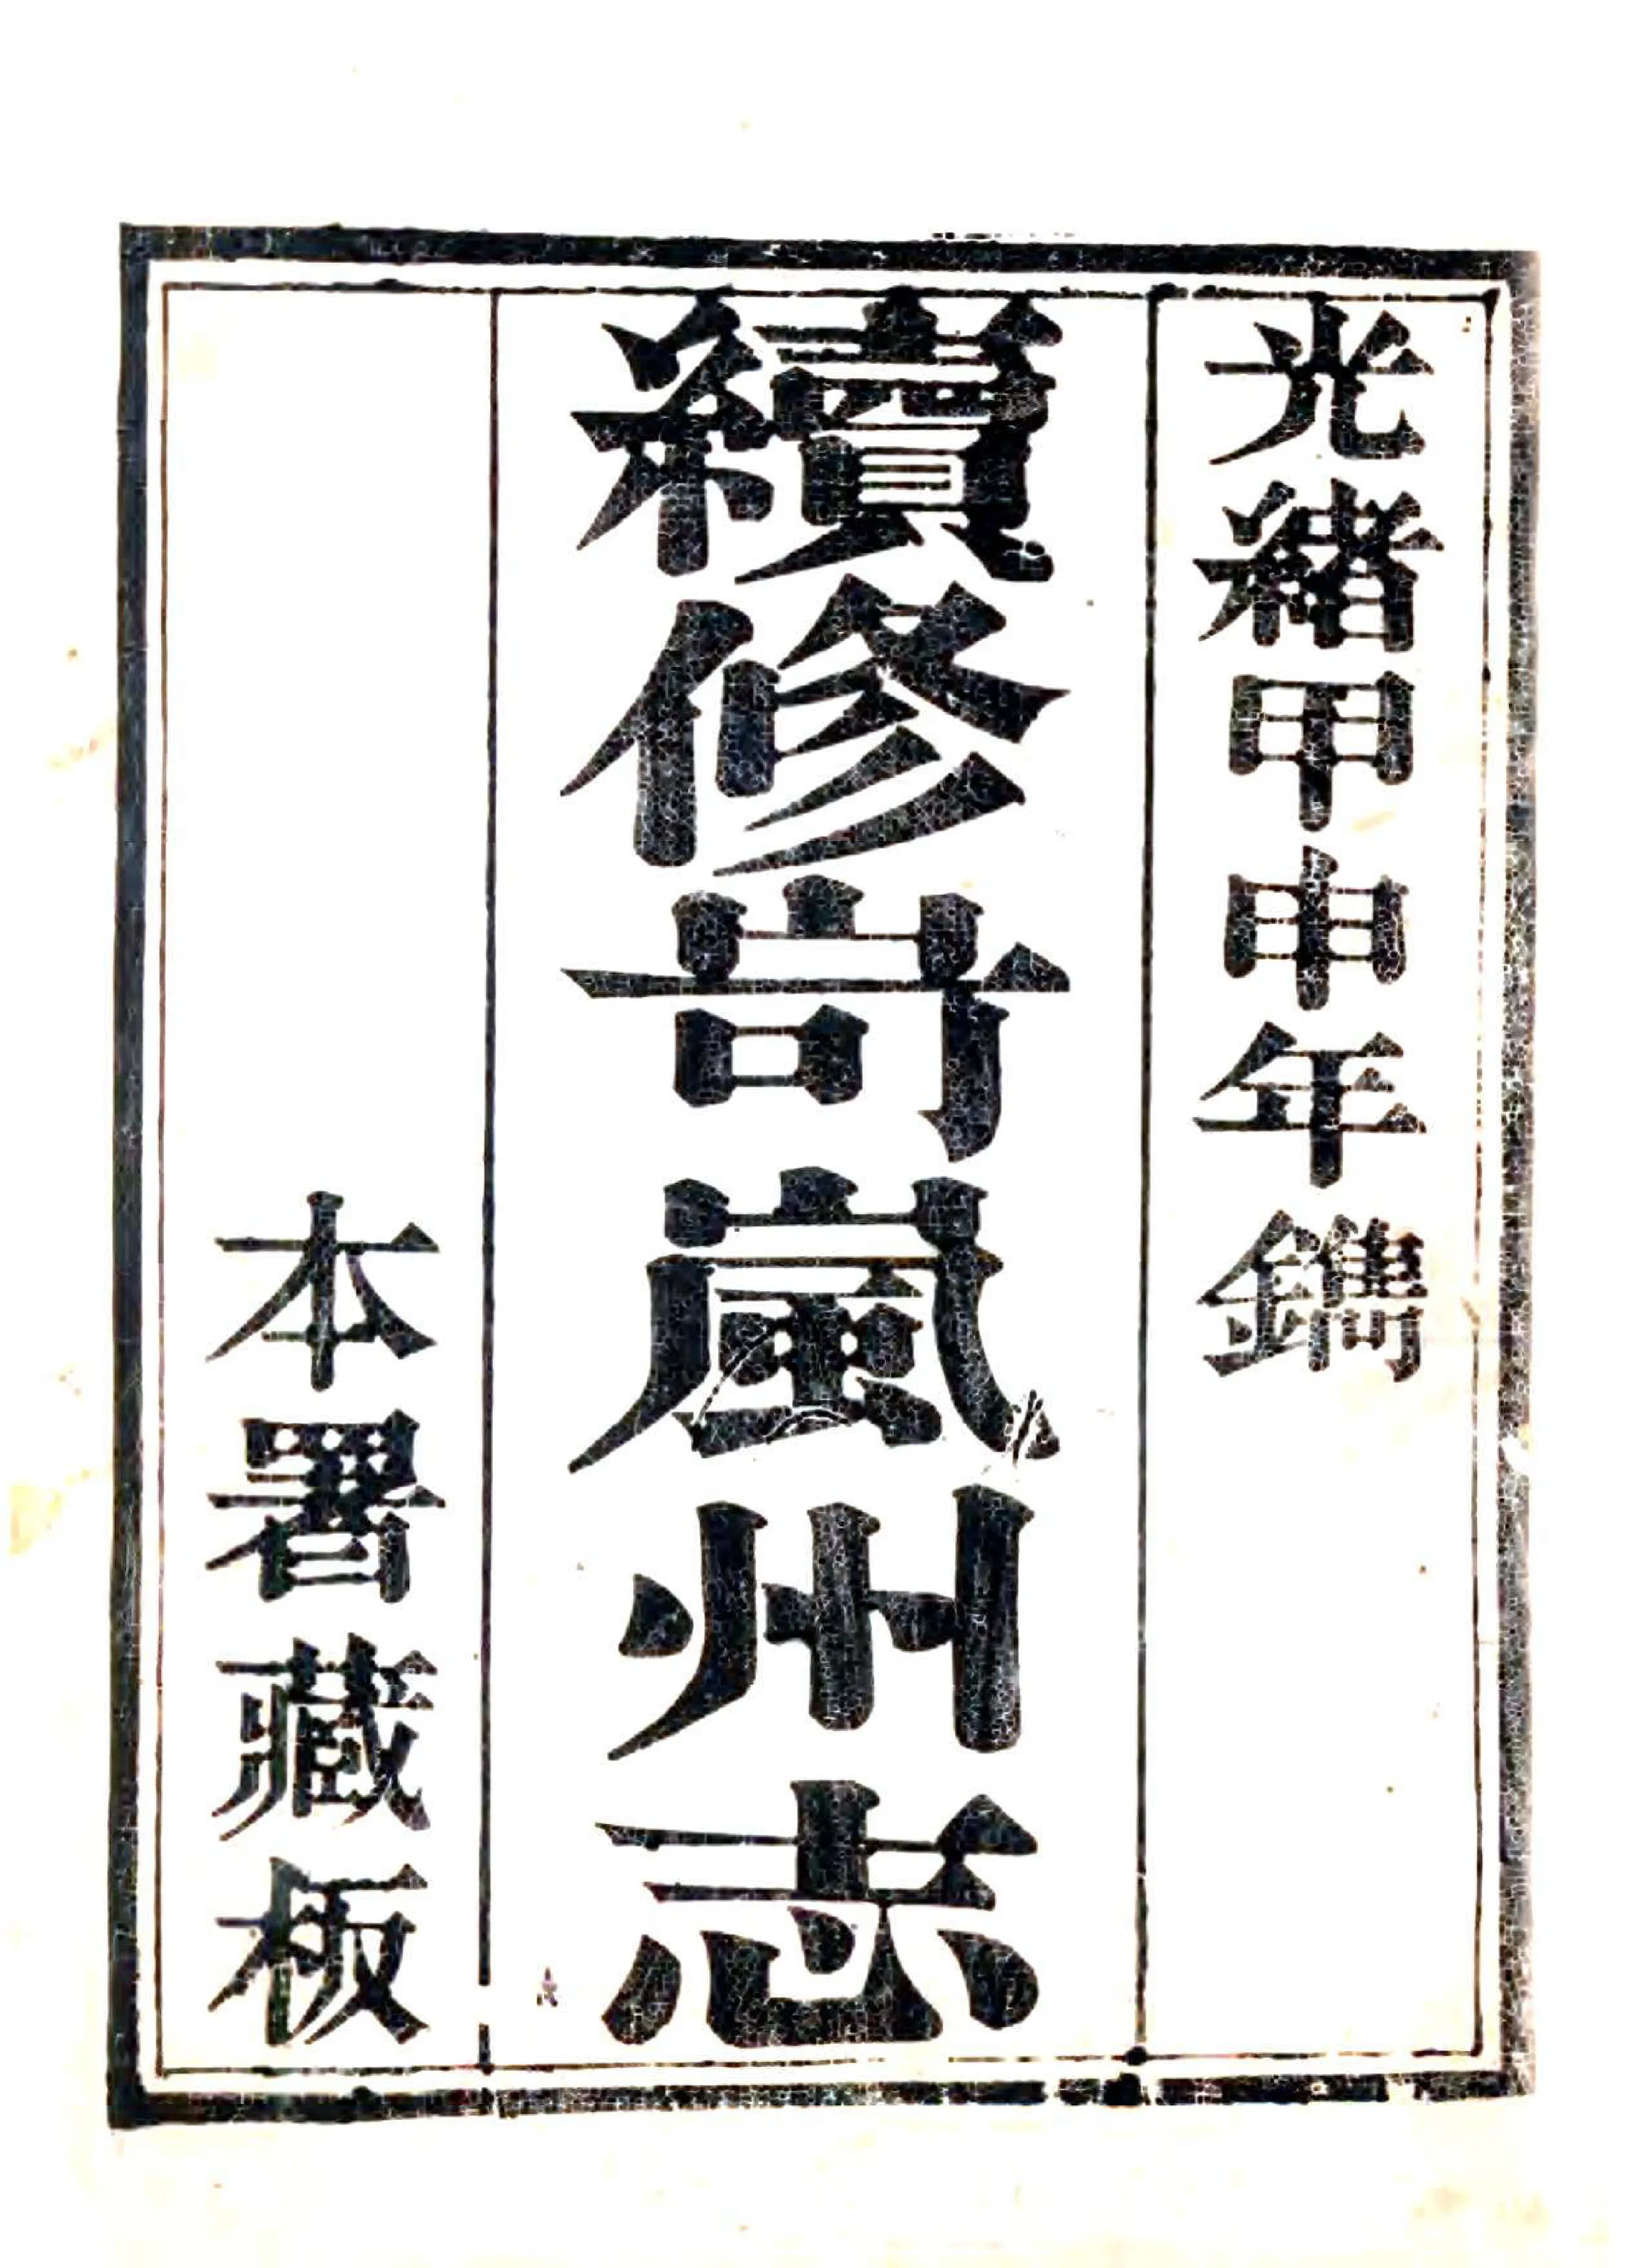 光緒甲申年鐫
續修岢嵐州志
本署藏板